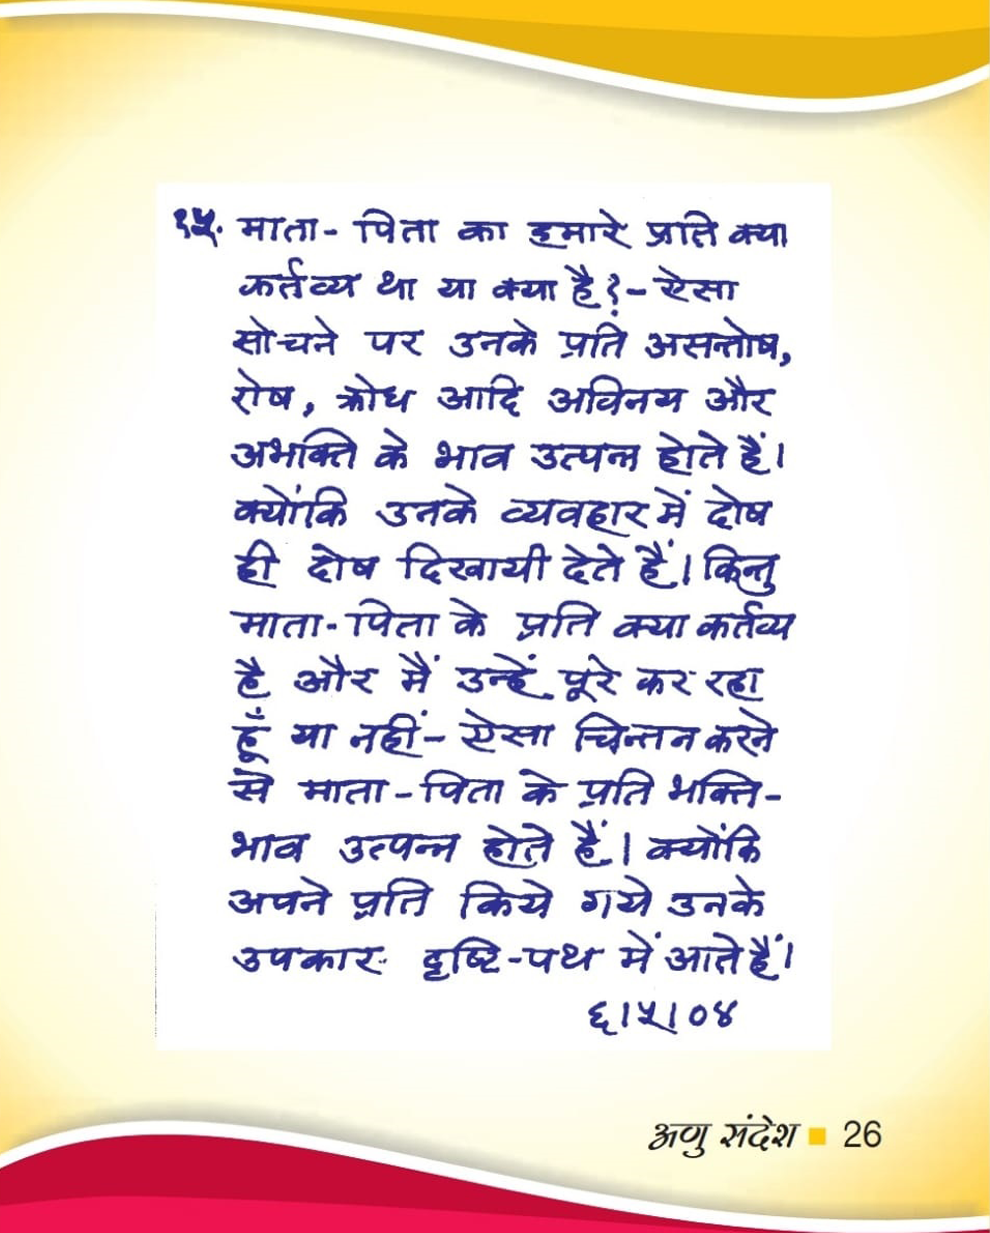 १५. माता- पिता का हमारे प्रति क्या
कर्तव्य था या क्या है?- ऐसा
सोचने पर उनके प्रति असन्तोष,
रोष, क्रोध आदि अविनय और
अभक्ति के भाव उत्पन्न होते हैं।
क्योंकि उनके व्यवहार में दोष
ही दोष दिखायी देते हैं। किन्तु
माता-पिता के प्रति क्या कर्तव्य
है और मैं उन्हें पूरे कर रहा
हूँ या नहीं- ऐसा चिन्तन करने
से माता-पिता के प्रति भक्ति-
भाव उत्पन्न होते हैं। क्योंकि
अपने प्रति किये गये उनके
उपकार दृष्टि-पथ में आते हैं।
६।५।०४
अणु संदेश ■ 26